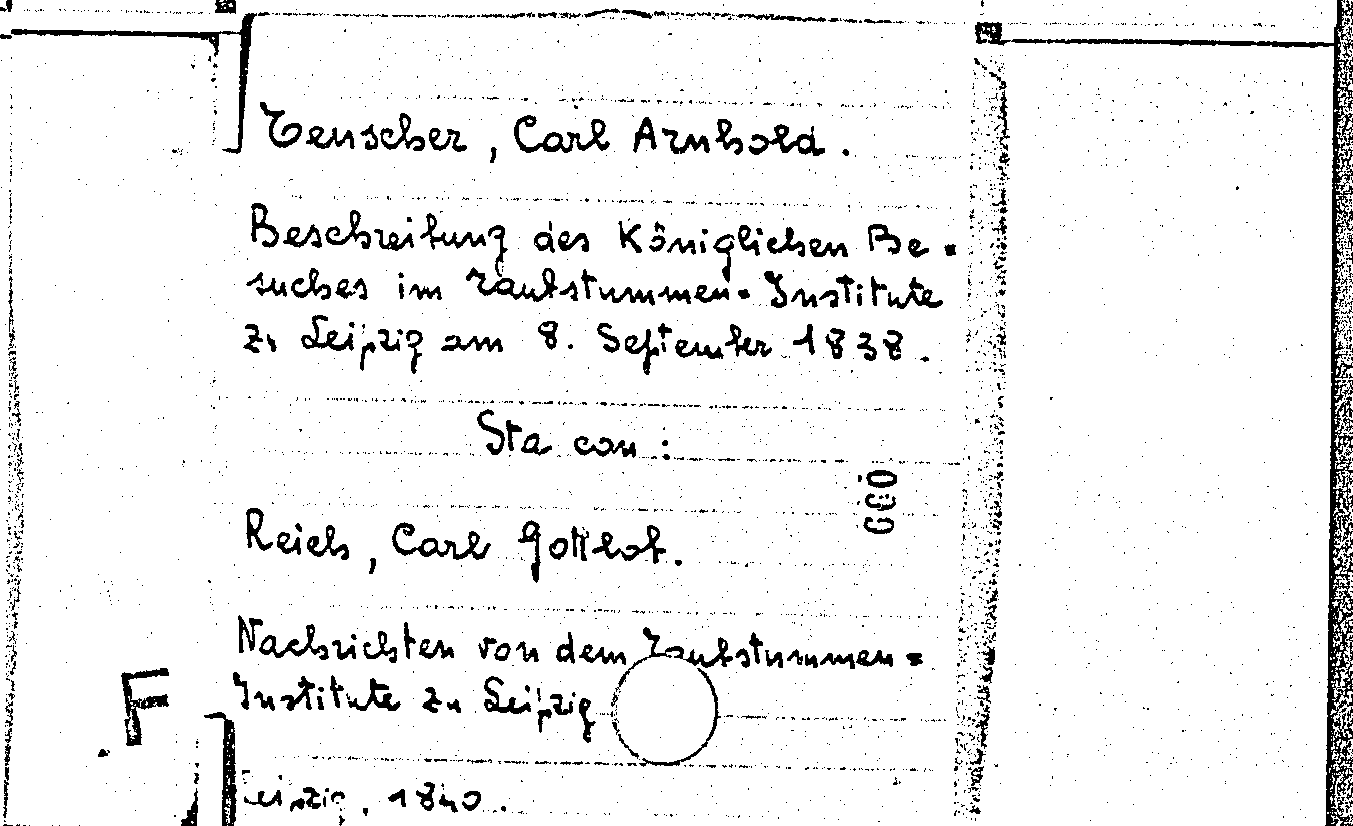 Teuscher, Carl Arnhold.
Beschreibung des Königlichen Be=
suches im Taubstummen=Institute
zu Leipzig am 8. September 1838.
Sta con:
Reich, Carl Gottlob.
Nachrichten von dem Taubstummen=
Institute zu Leipzig
Leipzig, 1840.
F